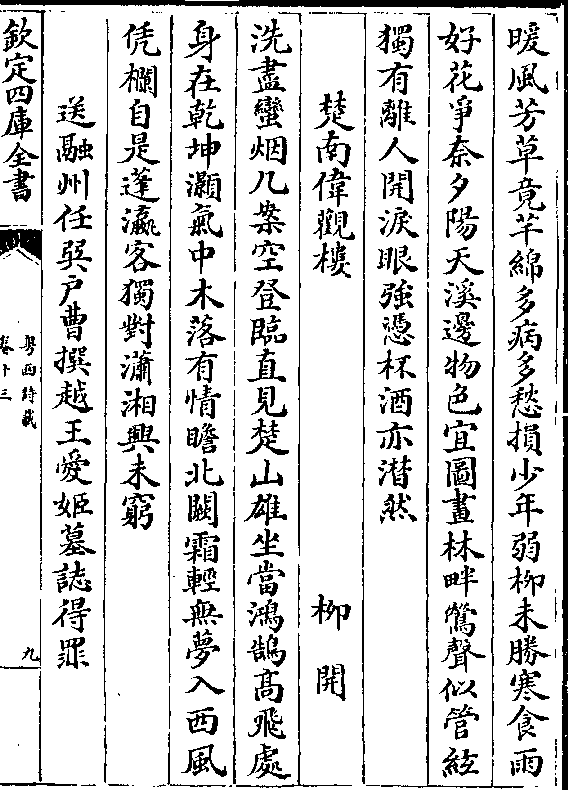 暖風芳草竟芊綿多病多愁損少年弱栁未勝寒食雨
好花爭奈夕陽天溪邊物色宜圖畫林畔鶯聲似管絃
獨有離人開淚眼強憑杯酒亦潸然
楚南偉觀樓　栁開
洗盡蠻烟几案空登臨直見楚山雄坐當鴻鵠髙飛處
身在乾坤灝氣中木落有情瞻北闕霜輕無夢入西風
凭欄自是蓬瀛客獨對瀟湘興未窮
送融州任巽户曹撰越王愛姬墓誌得罪
欽定四庫全書
粤西詩載
卷十三
九